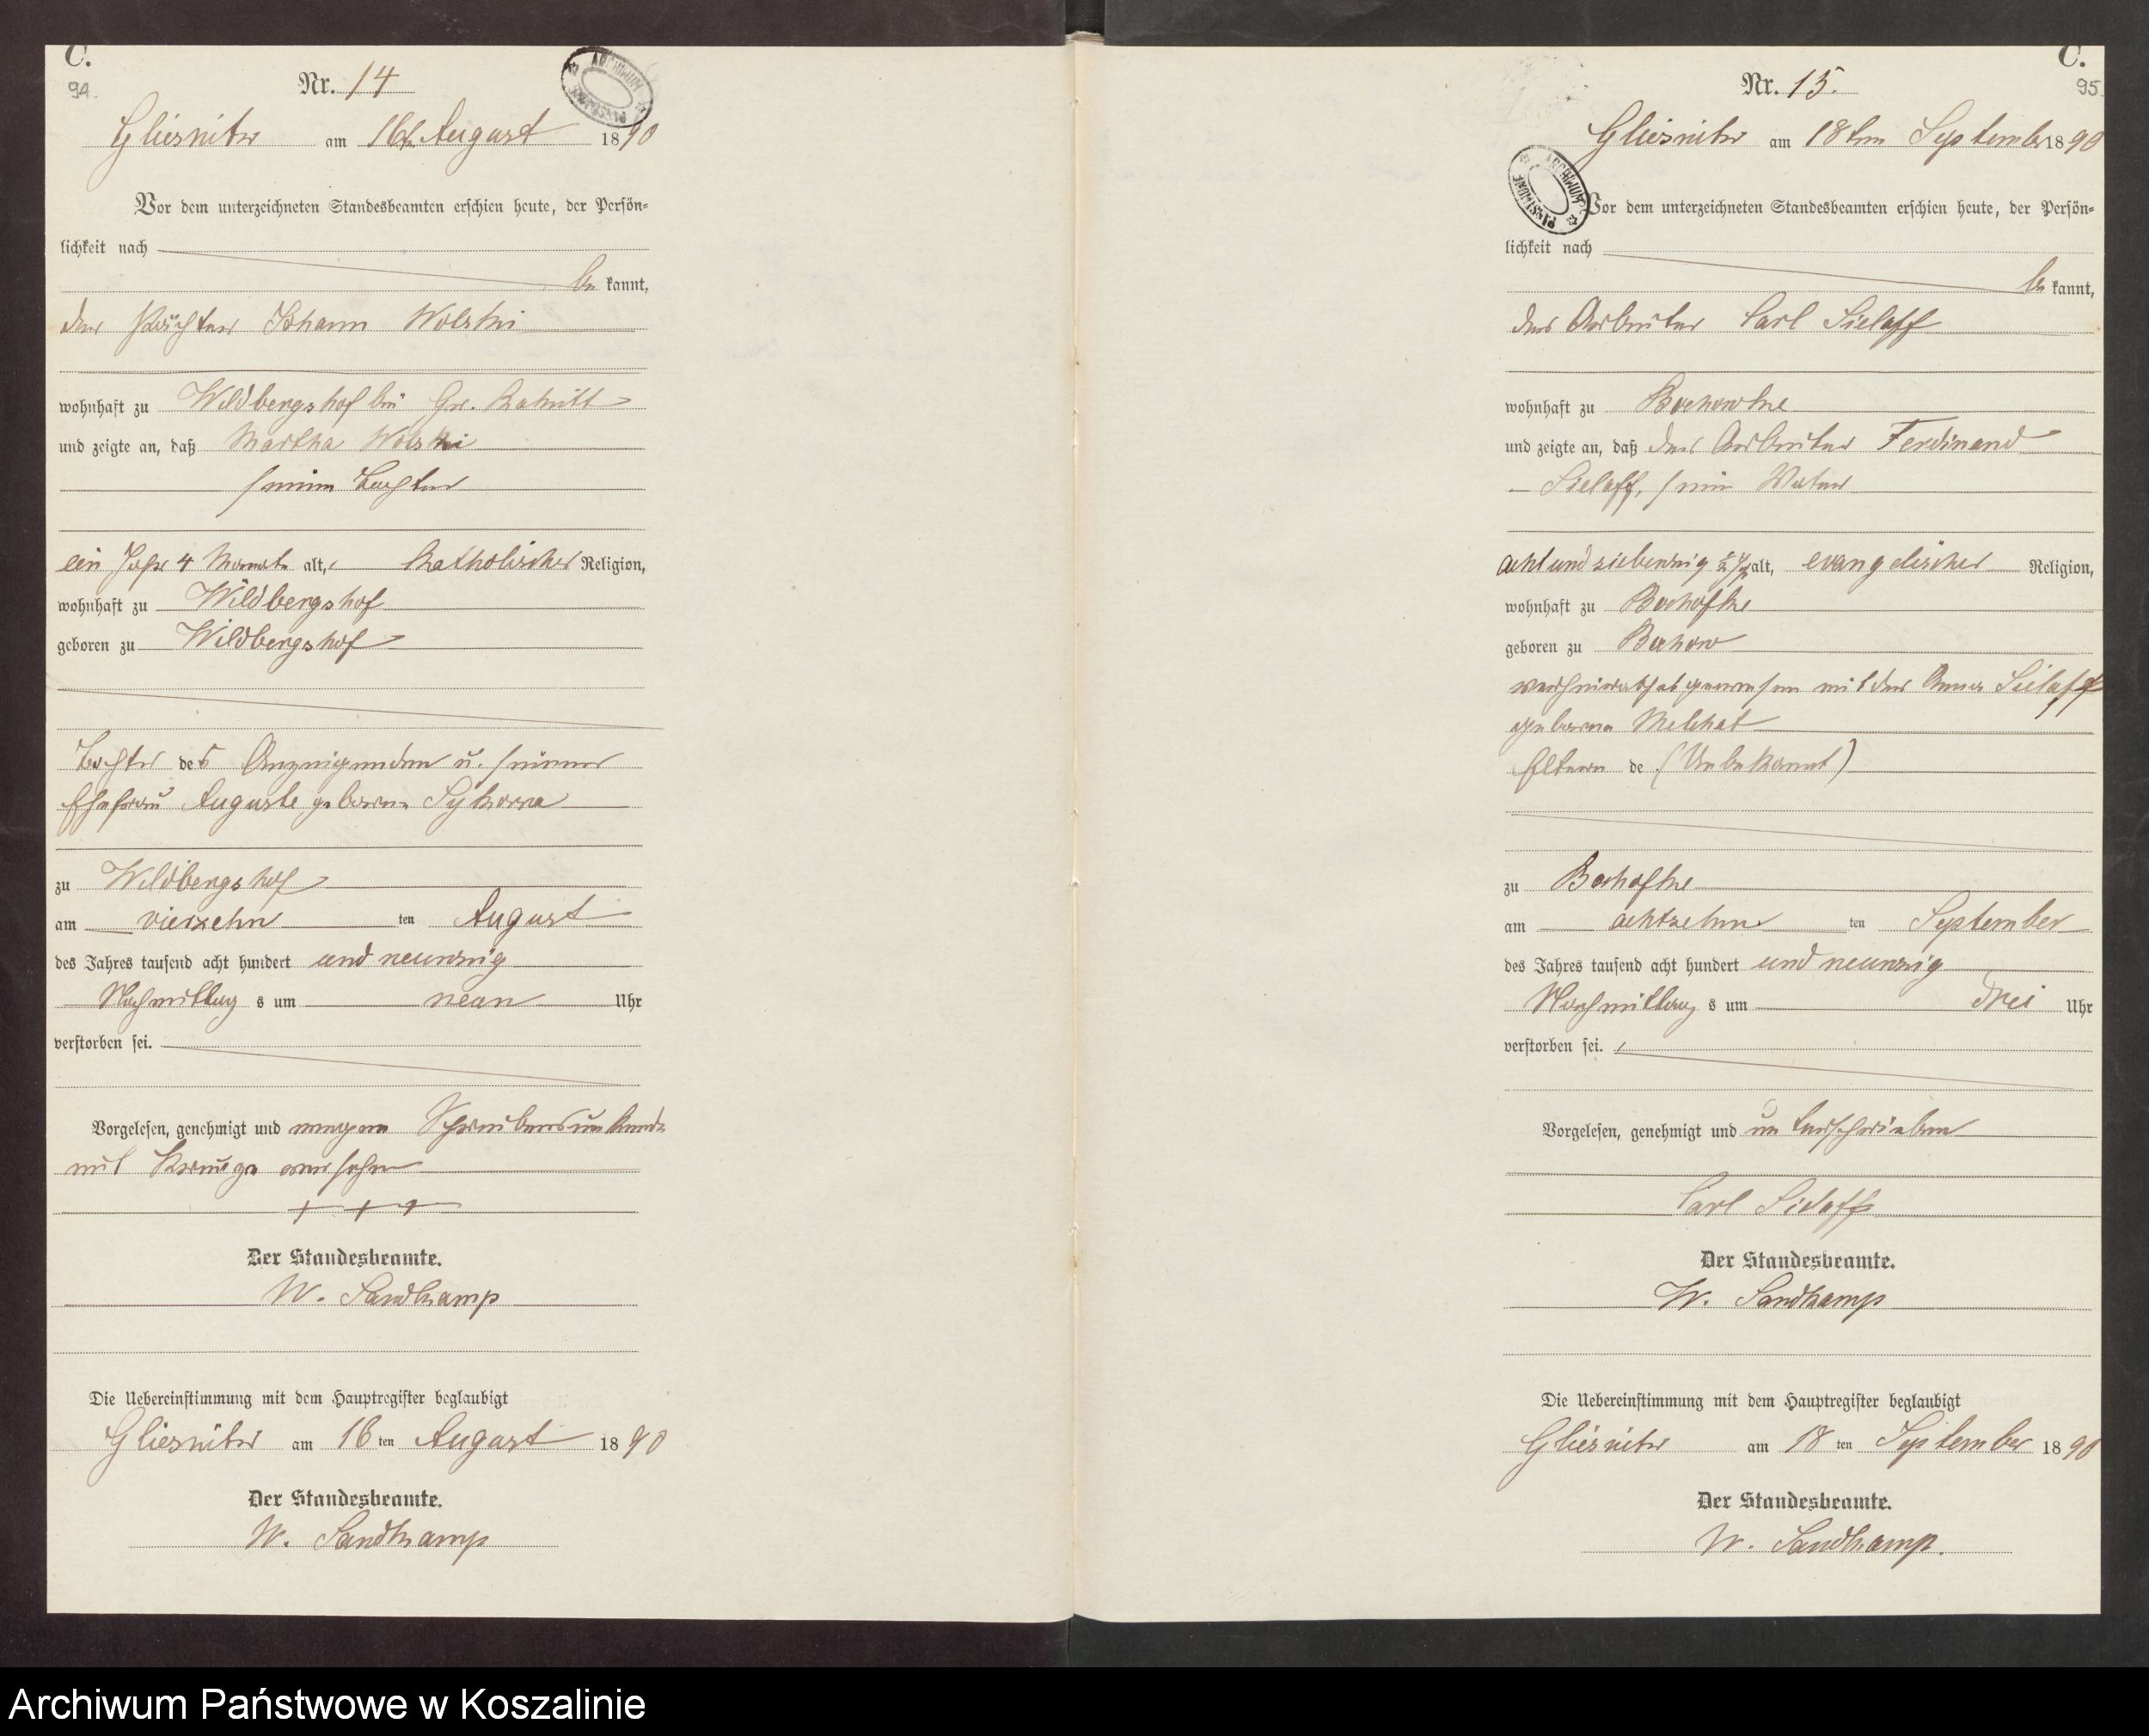 C.
94.
Nr. 14
ARCHIWUM PAŃSTWOWE
Gliesnitz am 16t August 1890
Vor dem unterzeichneten Standesbeamten erschien heute, der Persön-
lichkeit nach
be kannt,
der Pächter Johann Wolski
wohnhaft zu Wildbergshof bei Gr. Rakitt
und zeigte an, daß Martha Wolski
seine Tochter
ein Jahr 4 Monate alt, katholischer Religion,
wohnhaft zu Wildbergshof
geboren zu Wildbergshof
Tochter des Anzeigenden u. seiner
Ehefrau Auguste geborene Sykorra
zu Wildbergshof
am vierzehn ten August
des Jahres tausend acht hundert und neunzig
Nachmittag s um neun Uhr
verstorben sei.
Vorgelesen, genehmigt und wegen Schreibensunkunde
mit Kreuze versehen
+ + +
Der Standesbeamte.
W. Sandkamp
Die Uebereinstimmung mit dem Hauptregister beglaubigt
Gliesnitz am 16 ten August 1890
Der Standesbeamte.
W. Sandkamp
C.
95.
Nr. 15.
Gliesnitz am 18ten September 1890
ARCHIWUM PAŃSTWOWE
Vor dem unterzeichneten Standesbeamten erschien heute, der Persön-
lichkeit nach
be kannt,
der Arbeiter Carl Sielaff
wohnhaft zu Bochowke
und zeigte an, daß der Arbeiter Ferdinand
Sielaff, sein Vater
achtundsiebenzig alt, evangelischer Religion,
wohnhaft zu Bochofke
geboren zu Bochow
verheirathet gewesen mit der Anna Sielaff
geborne Melchat
Eltern de (Unbekannt)
zu Bochofke
am achtzehn ten September
des Jahres tausend acht hundert und neunzig
Nachmittag s um drei Uhr
verstorben sei.
Vorgelesen, genehmigt und unterschrieben
Carl Sielaff
Der Standesbeamte.
W. Sandkamp
Die Uebereinstimmung mit dem Hauptregister beglaubigt
Gliesnitz am 18 ten September 1890
Der Standesbeamte.
W. Sandkamp.
Archiwum Państwowe w Koszalinie